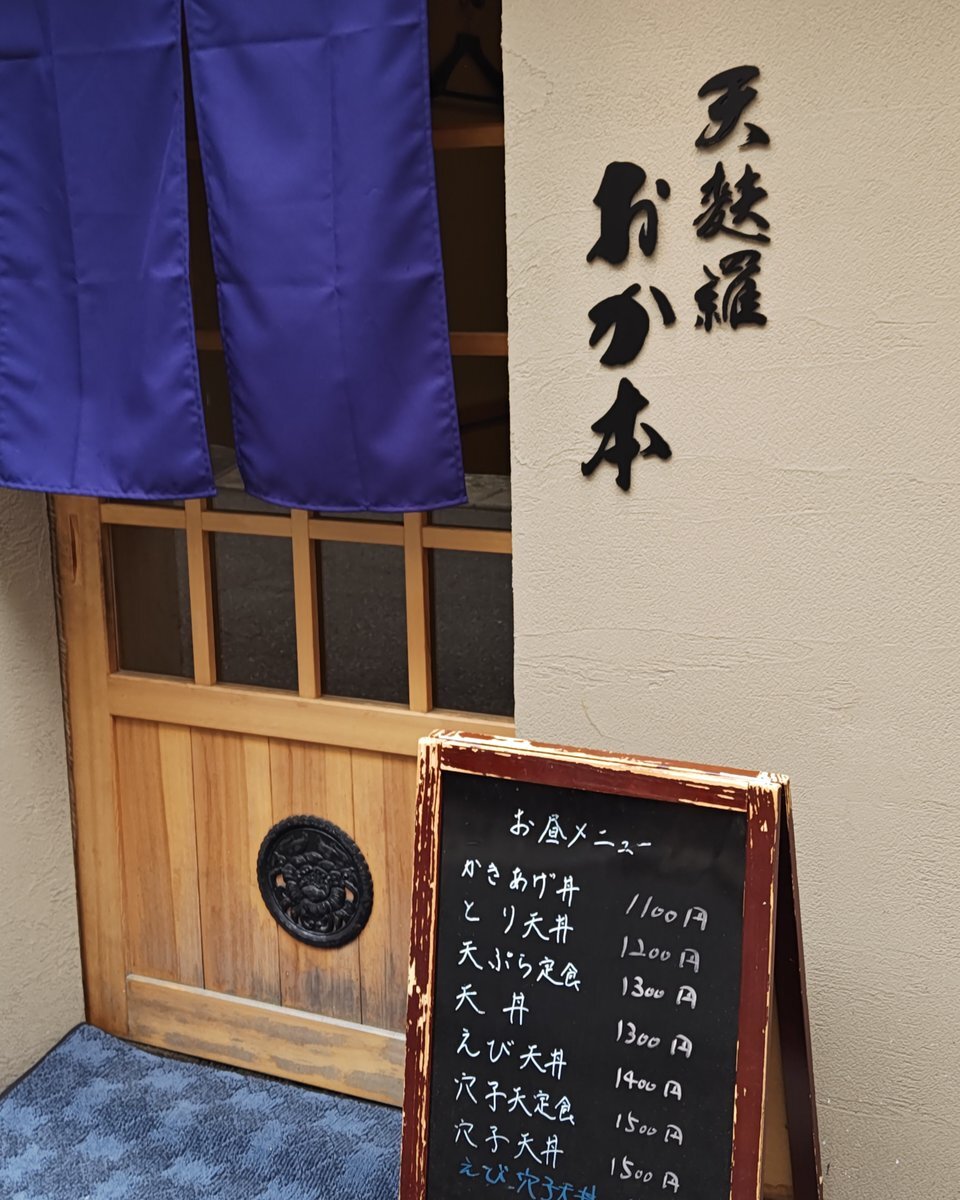 天麩羅
おか本
お昼メニュー
かきあげ丼 1100円
とり天丼 1200円
天ぷら定食 1300円
天丼 1300円
えび天丼 1400円
穴子天定食 1500円
穴子天丼 1500円
えび穴子天丼